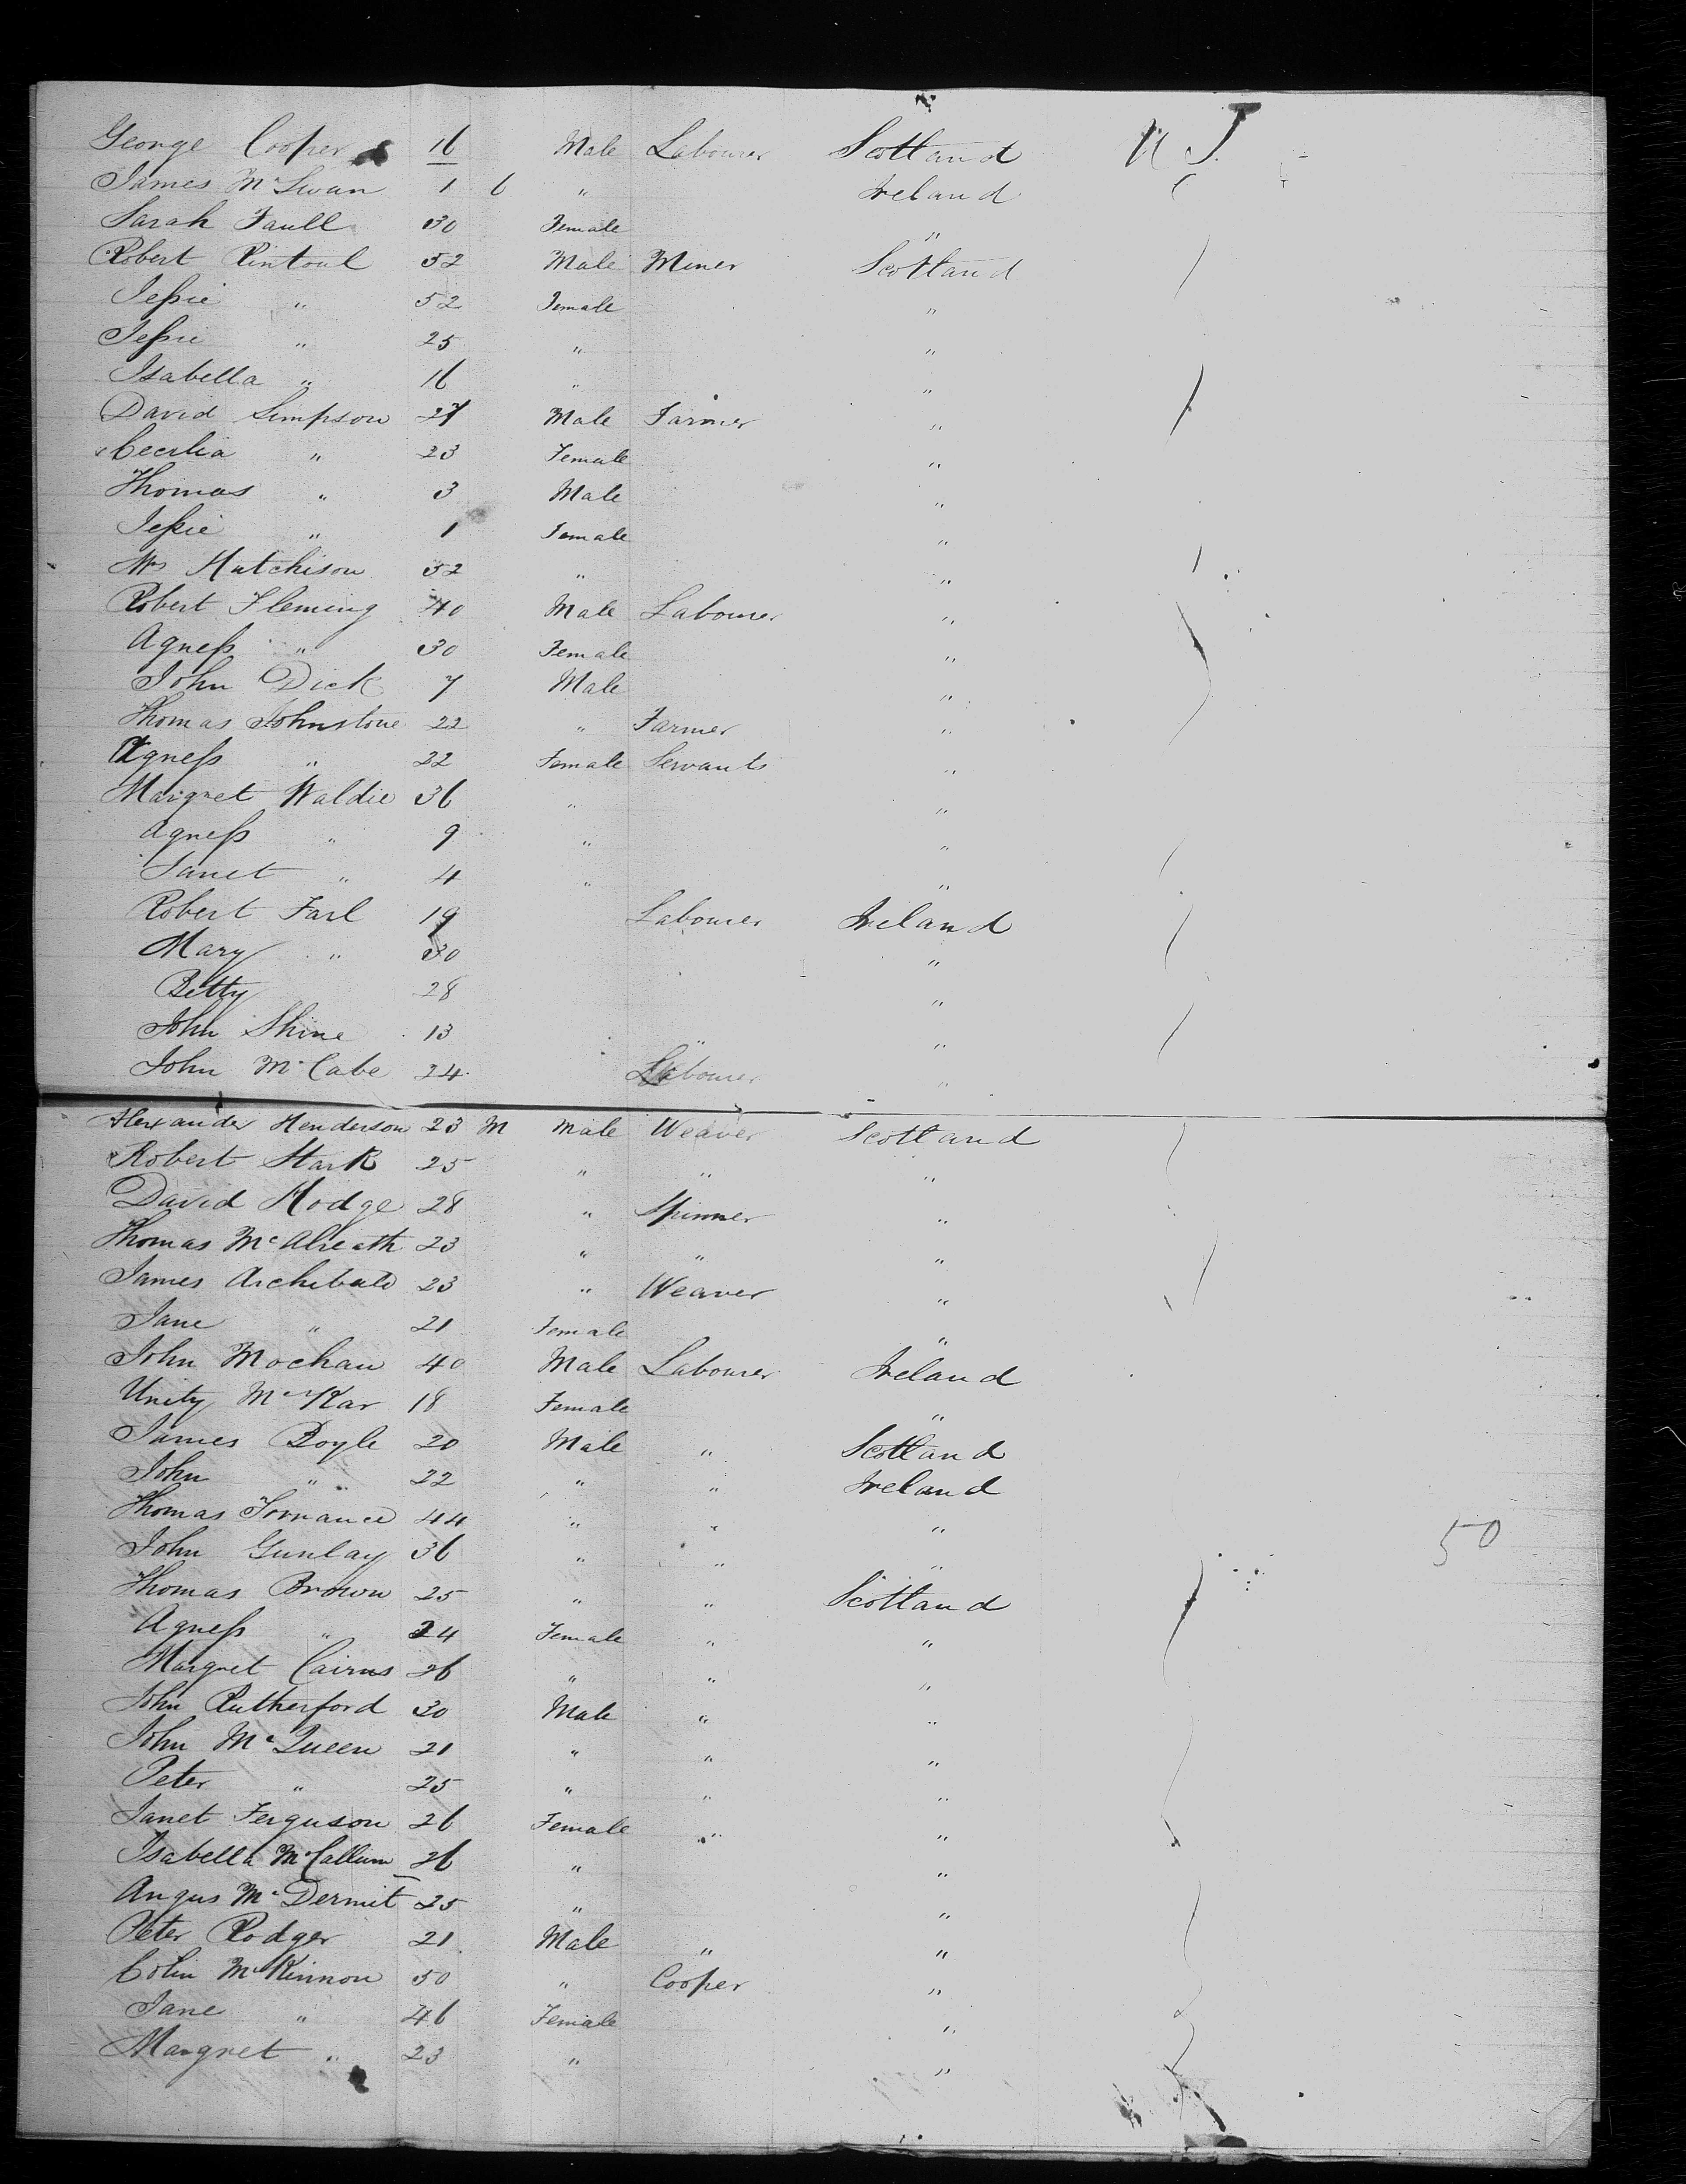 George Cooper 16 Male Labourer Scotland U S.
James McSwan 1 6 " Ireland
Sarah Faull 30 Female "
Robert Rintoul 52 Male Miner Scotland
Jessie " 52 Female "
Jessie " 25 " "
Isabella " 16 " "
David Simpson 27 Male Farmer "
Cecilia " 23 Female "
Thomas " 3 Male "
Jessie " 1 Female "
Mrs Hutchison 52 " "
Robert Fleming 40 Male Labourer "
Agness " 30 Female "
John Dick 7 Male "
Thomas Johnstone 22 " Farmer "
Agness " 22 Female Servants "
Margret Waldie 36 " "
Agness " 9 " "
Janet " 4 " "
Robert Farl 19 Labourer Ireland
Mary " 30 "
Betty 28 "
John Shine 13 "
John McCabe 24 Labourer "
Alexander Henderson 23 M Male Weaver Scotland
Robert Stark 25 " " "
David Hodge 28 " Spinner "
Thomas 23 " " "
James Archibald 23 " Weaver "
Jane " 21 Female "
John Mochan 40 Male Labourer Ireland
Unity McKar 18 Female "
James Boyle 20 Male " Scotland
John " 22 " " Ireland
Thomas Torrance 44 " " "
John Gunlay 36 " " " 50
Thomas Brown 25 " " Scotland
Agness " 24 Female " "
Margret Cairns 26 " " "
John Rutherford 30 Male " "
John McQueen 21 " " "
Peter " 25 " " "
Janet Ferguson 26 Female " "
Isabella McCallum 26 " "
Angus McDermit 25 " "
Peter Rodger 21 Male " "
Colin McKinnon 50 " Cooper "
Jane " 46 Female "
Margret " 23 " "